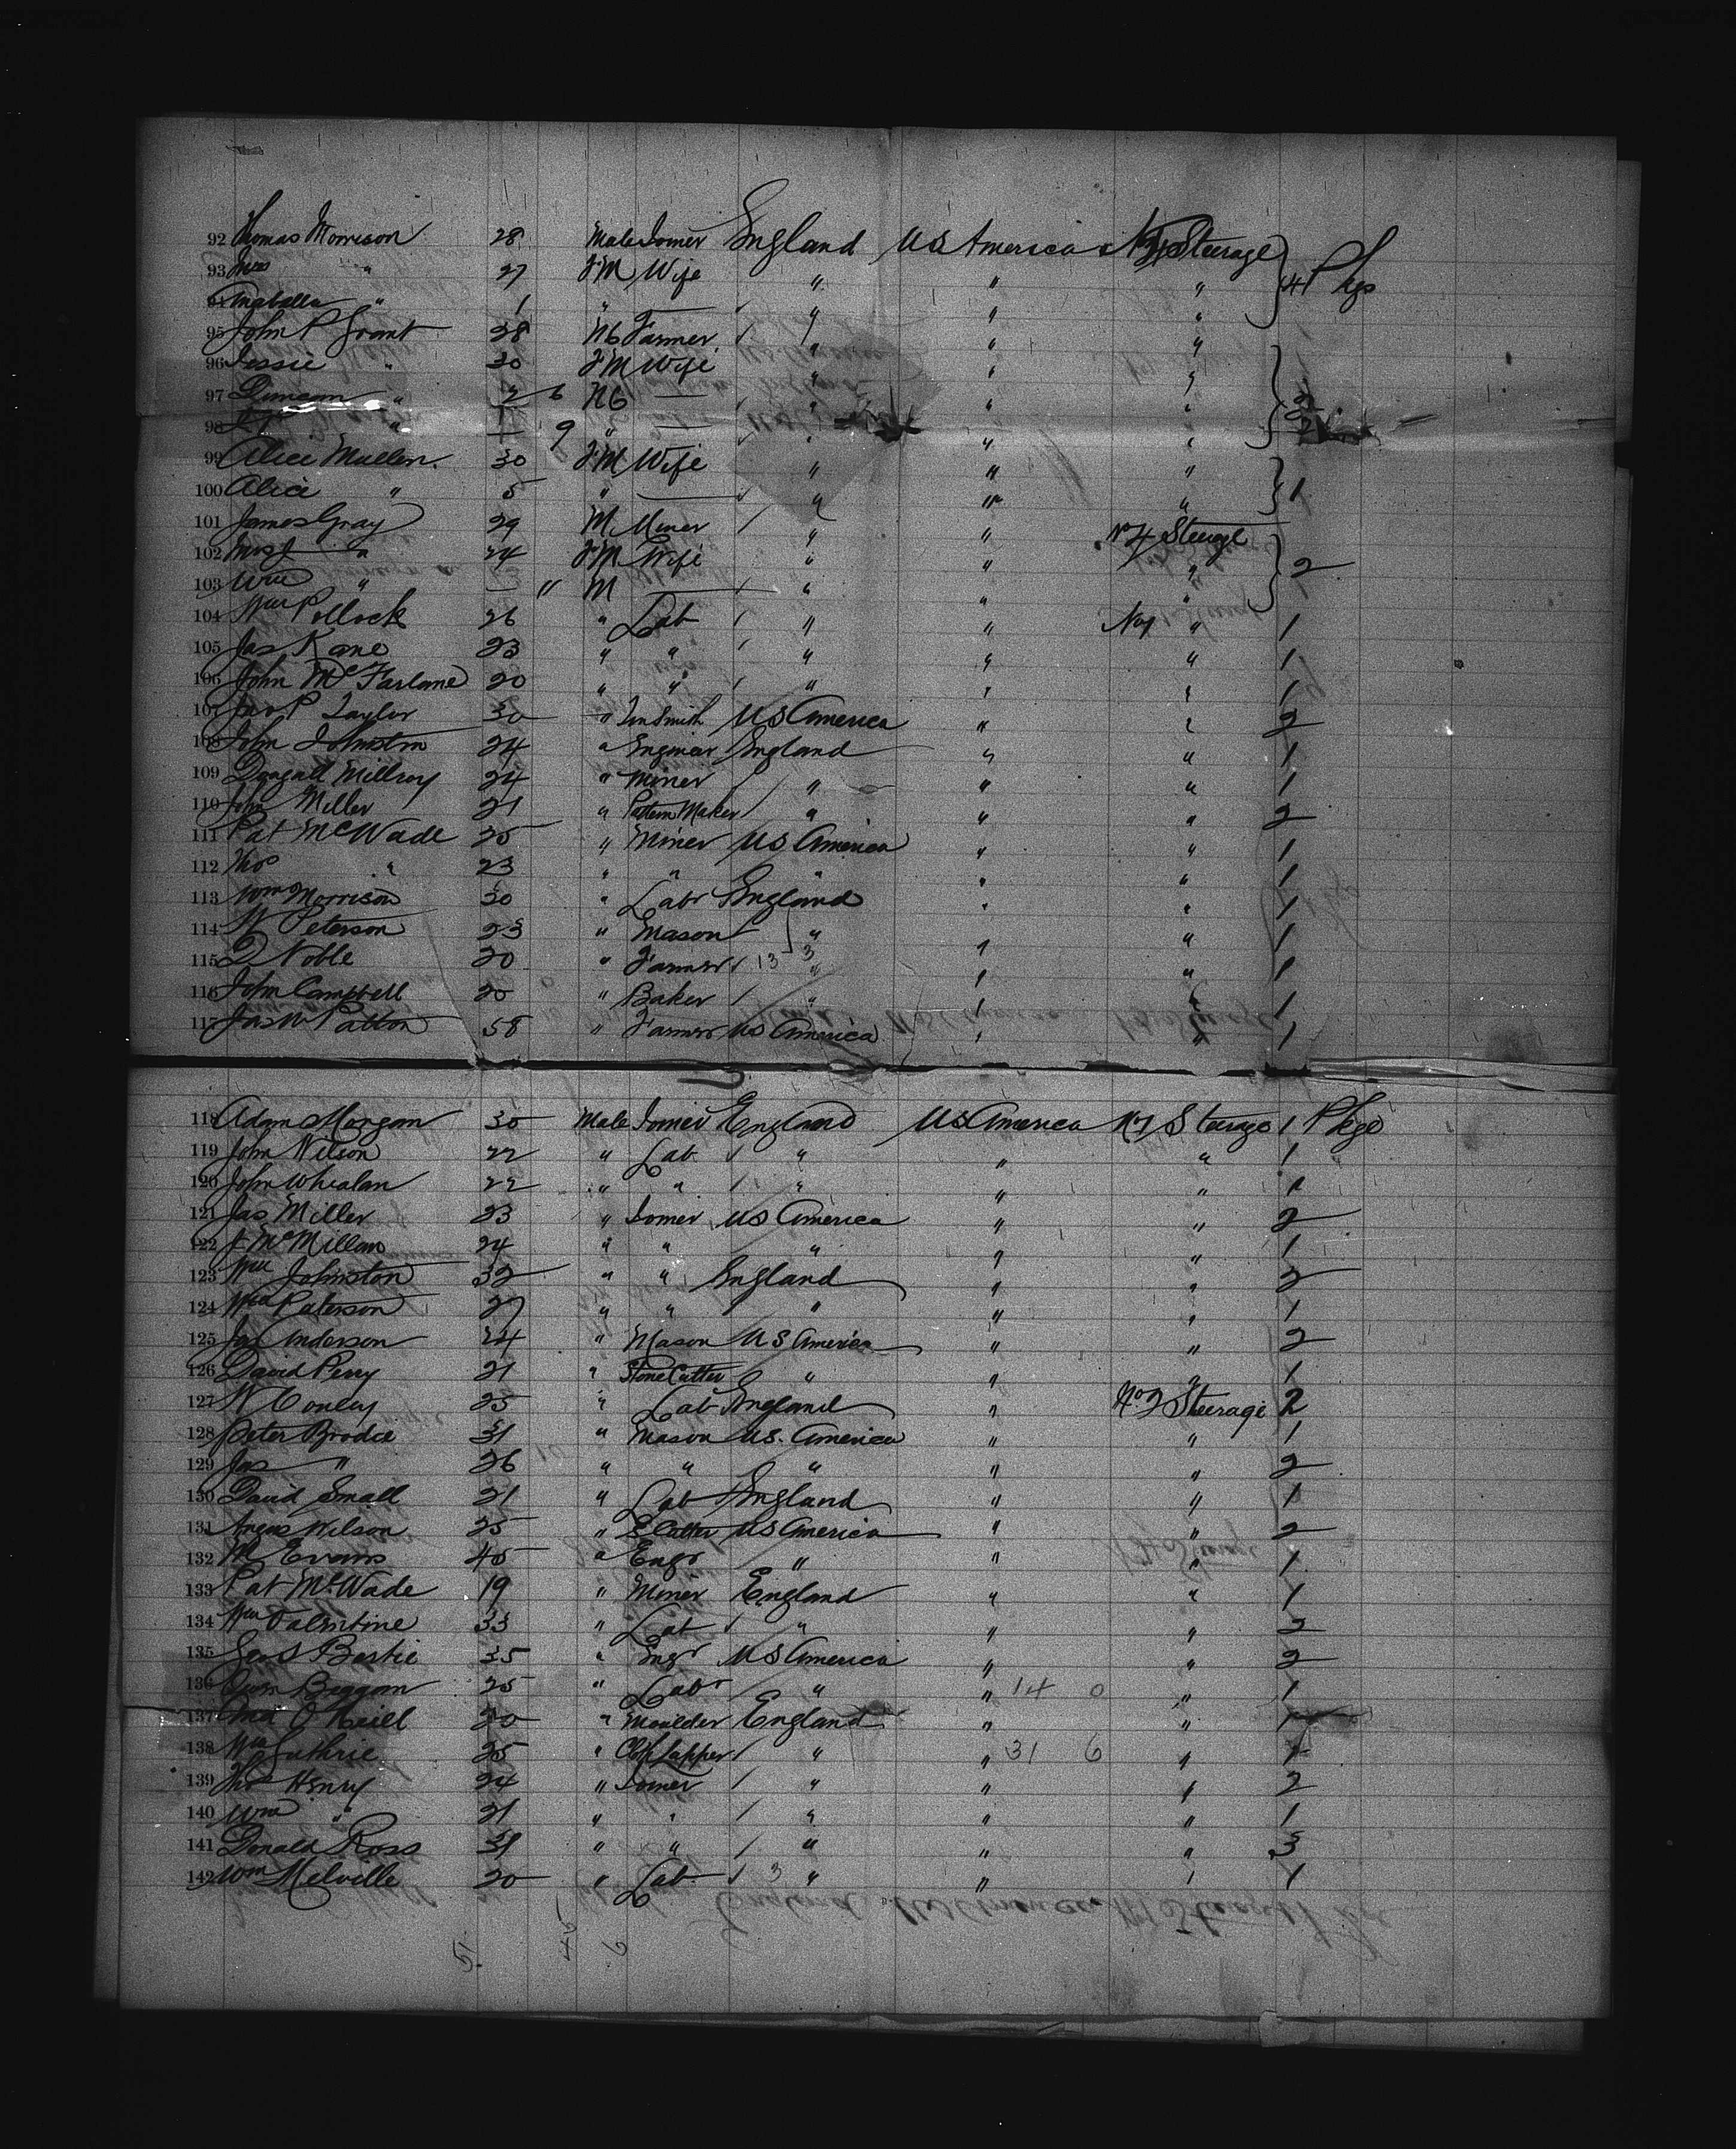 92 Thomas Morrison 28 Male Joiner England U S America No 4 Steerage 4 Pkgs
93 Mrs " 27 FM Wife " " "
94 Anabella " 1 " — " " "
95 John P Grant 38 M Farmer " " "
96 Jessie " 30 FM Wife " " "
97 Duncan " 2 6 M — " " "
98 " — 9 " — " " "
99 Alice Mullen 30 FM Wife " " "
100 Alice " 5 " — " " " 1
101 James Gray 29 M Miner " " No 4 Steerage
102 Mrs J " 24 FM Wife " " " 2
103 Wm " — 11 M — " " "
104 Wm Pollock 26 " Lab " " No 1 " 1
105 Jas Kane 23 " " " " " 1
106 John McFarlane 20 " " " " " 1
107 Jno P Taylor 30 " Tin Smith U S America " " 2
108 John Johnston 24 " Engineer England " " 1
109 Dougall Millroy 24 " Miner " " " 1
110 John Miller 21 " Pattern Maker " " " 2
111 Pat McWade 25 " Miner U S America " " 1
112 Thos " 23 " " " " " 1
113 Wm Morrison 30 " Labr England " " 1
114 W Peterson 23 " Mason " " " 1
115 D Noble 20 " Farmer 13 3 " " " 1
116 John Campbell 20 " Baker " " " 1
117 Jas W Patton 58 " Farmer U S America " " 1
118 Adam Morgan 30 Male Joiner England U S America No 1 Steerage 1 Pkge
119 John Nelson 22 " Lab " " " 1
120 John Whealan 22 " " " " " 1
121 Jas Miller 23 " Joiner U S America " " 2
122 J McMillan 24 " " " " " 1
123 Wm Johnston 32 " " England " " 2
124 Wm Paterson 27 " " " " " 1
125 Jas Anderson 24 " Mason U S America " " 2
126 David Perry 21 " Stone Cutter " " " 1
127 W Conley 25 " Lab England " No 2 Steerage 2
128 Peter Brodie 31 " Mason U.S. America " " 1
129 Jas " 26 " " " " " 2
130 David Small 21 " Lab England " " 1
131 Angus Wilson 25 " Cutter U S America " " 2
132 M Evans 45 " Engr " " " 1
133 Pat McWade 19 " Miner England " " 1
134 Wm Valentine 33 " Lab " " " 2
135 Geo S Bastie 35 " Engr U S America " " 2
136 Owen Beggan 25 " Labr " " 14 0 " 1
137 O'Neill 20 " Moulder England " " 1
138 Wm Guthrie 25 " Cloth Lapper " " 31 6 " 1
139 Thos Henry 24 " Joiner " " " 2
140 Wm " 21 " " " " " 1
141 Donald Ross 31 " " " " " 3
142 Wm Melville 20 " Lab 3 " " " 1